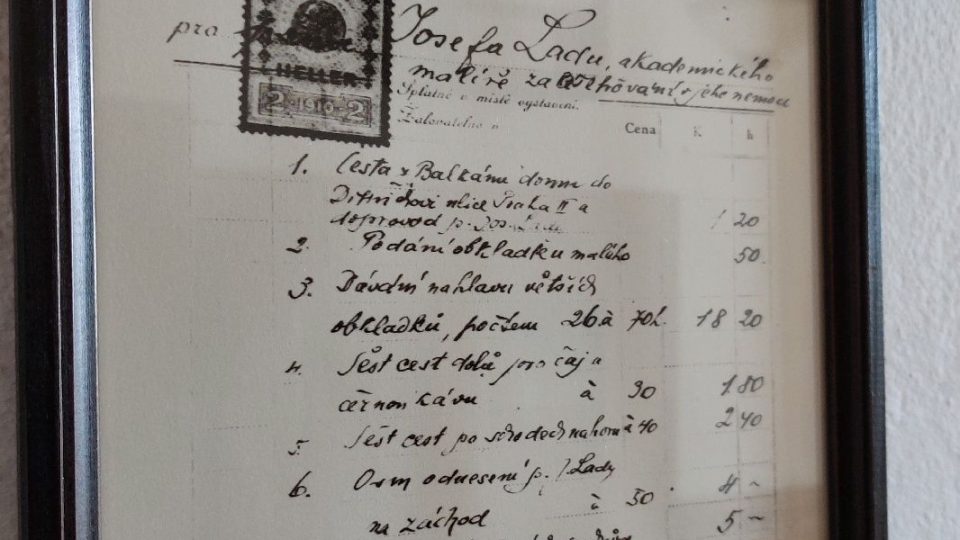 pro Josefa Ladu, akademického
malíře za ošetřování v jeho nemoci
HELLER
2 1916 2
Splatné v místě vystavení.
Žalovatelno v
Cena K h
1. Cesta z Balkánu domů do
Dittrichovi ulice Praha II a
doprovod p. Jos. Lady 1 20
2. Podání obkladku malého 50
3. Dávání na hlavu větších
obkladků, počtem 26 à 70 h. 18 20
4. Šest cest dolů pro čaj a
černou kávu à 30 1 80
5. Šest cest po schodech nahoru à 40 2 40
6. Osm odnesení p. J. Lady
à 50 4 -
na záchod 5 -